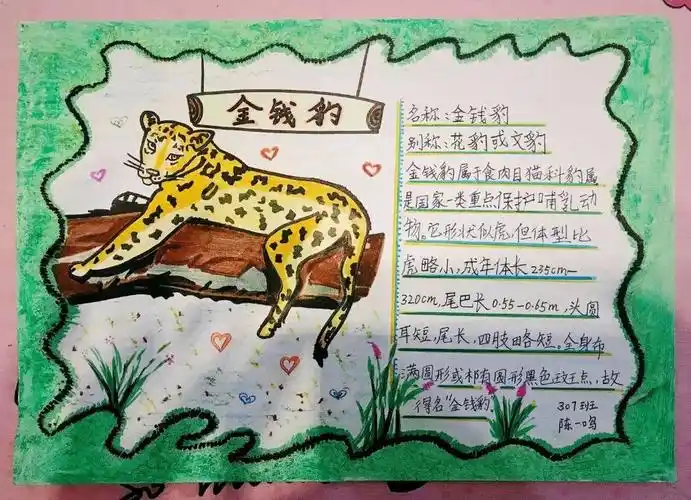 金钱豹
名称：金钱豹
别称：花豹或文豹
金钱豹属于食肉目猫科豹属
是国家一类重点保护哺乳动
物。它形状似虎，但体型比
虎略小，成年体长235cm—
320cm，尾巴长0.55-0.65m，头圆
耳短，尾长，四肢略短。全身布
满圆形或有圆形黑色斑点，故
得名“金钱豹
307班
陈一鸣